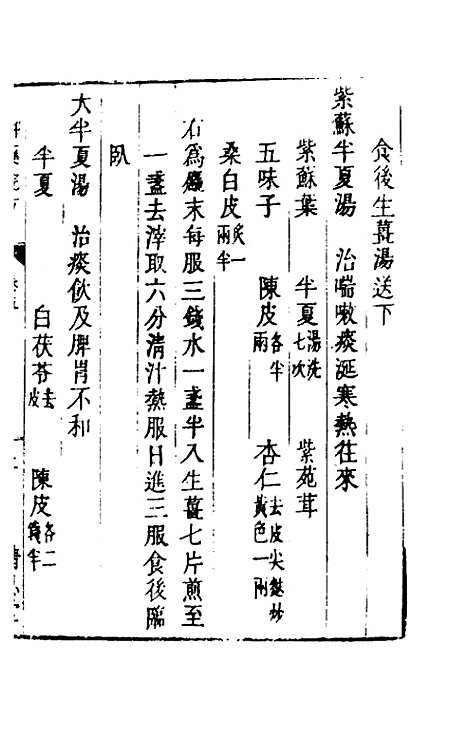 食後生薑湯送下
紫蘇半夏湯　治喘嗽痰涎寒熱往來
紫蘇葉　半夏湯洗七次　紫菀茸
五味子　陳皮各半兩　杏仁去皮尖麩炒黃色一兩
桑白皮炙一兩半
右爲麄末每服三錢水一盞半入生薑七片煎至
一盞去滓取六分清汁熱服日進三服食後臨
臥
大半夏湯　治痰飲及脾胃不和
半夏　白茯苓去皮　陳皮各二錢半